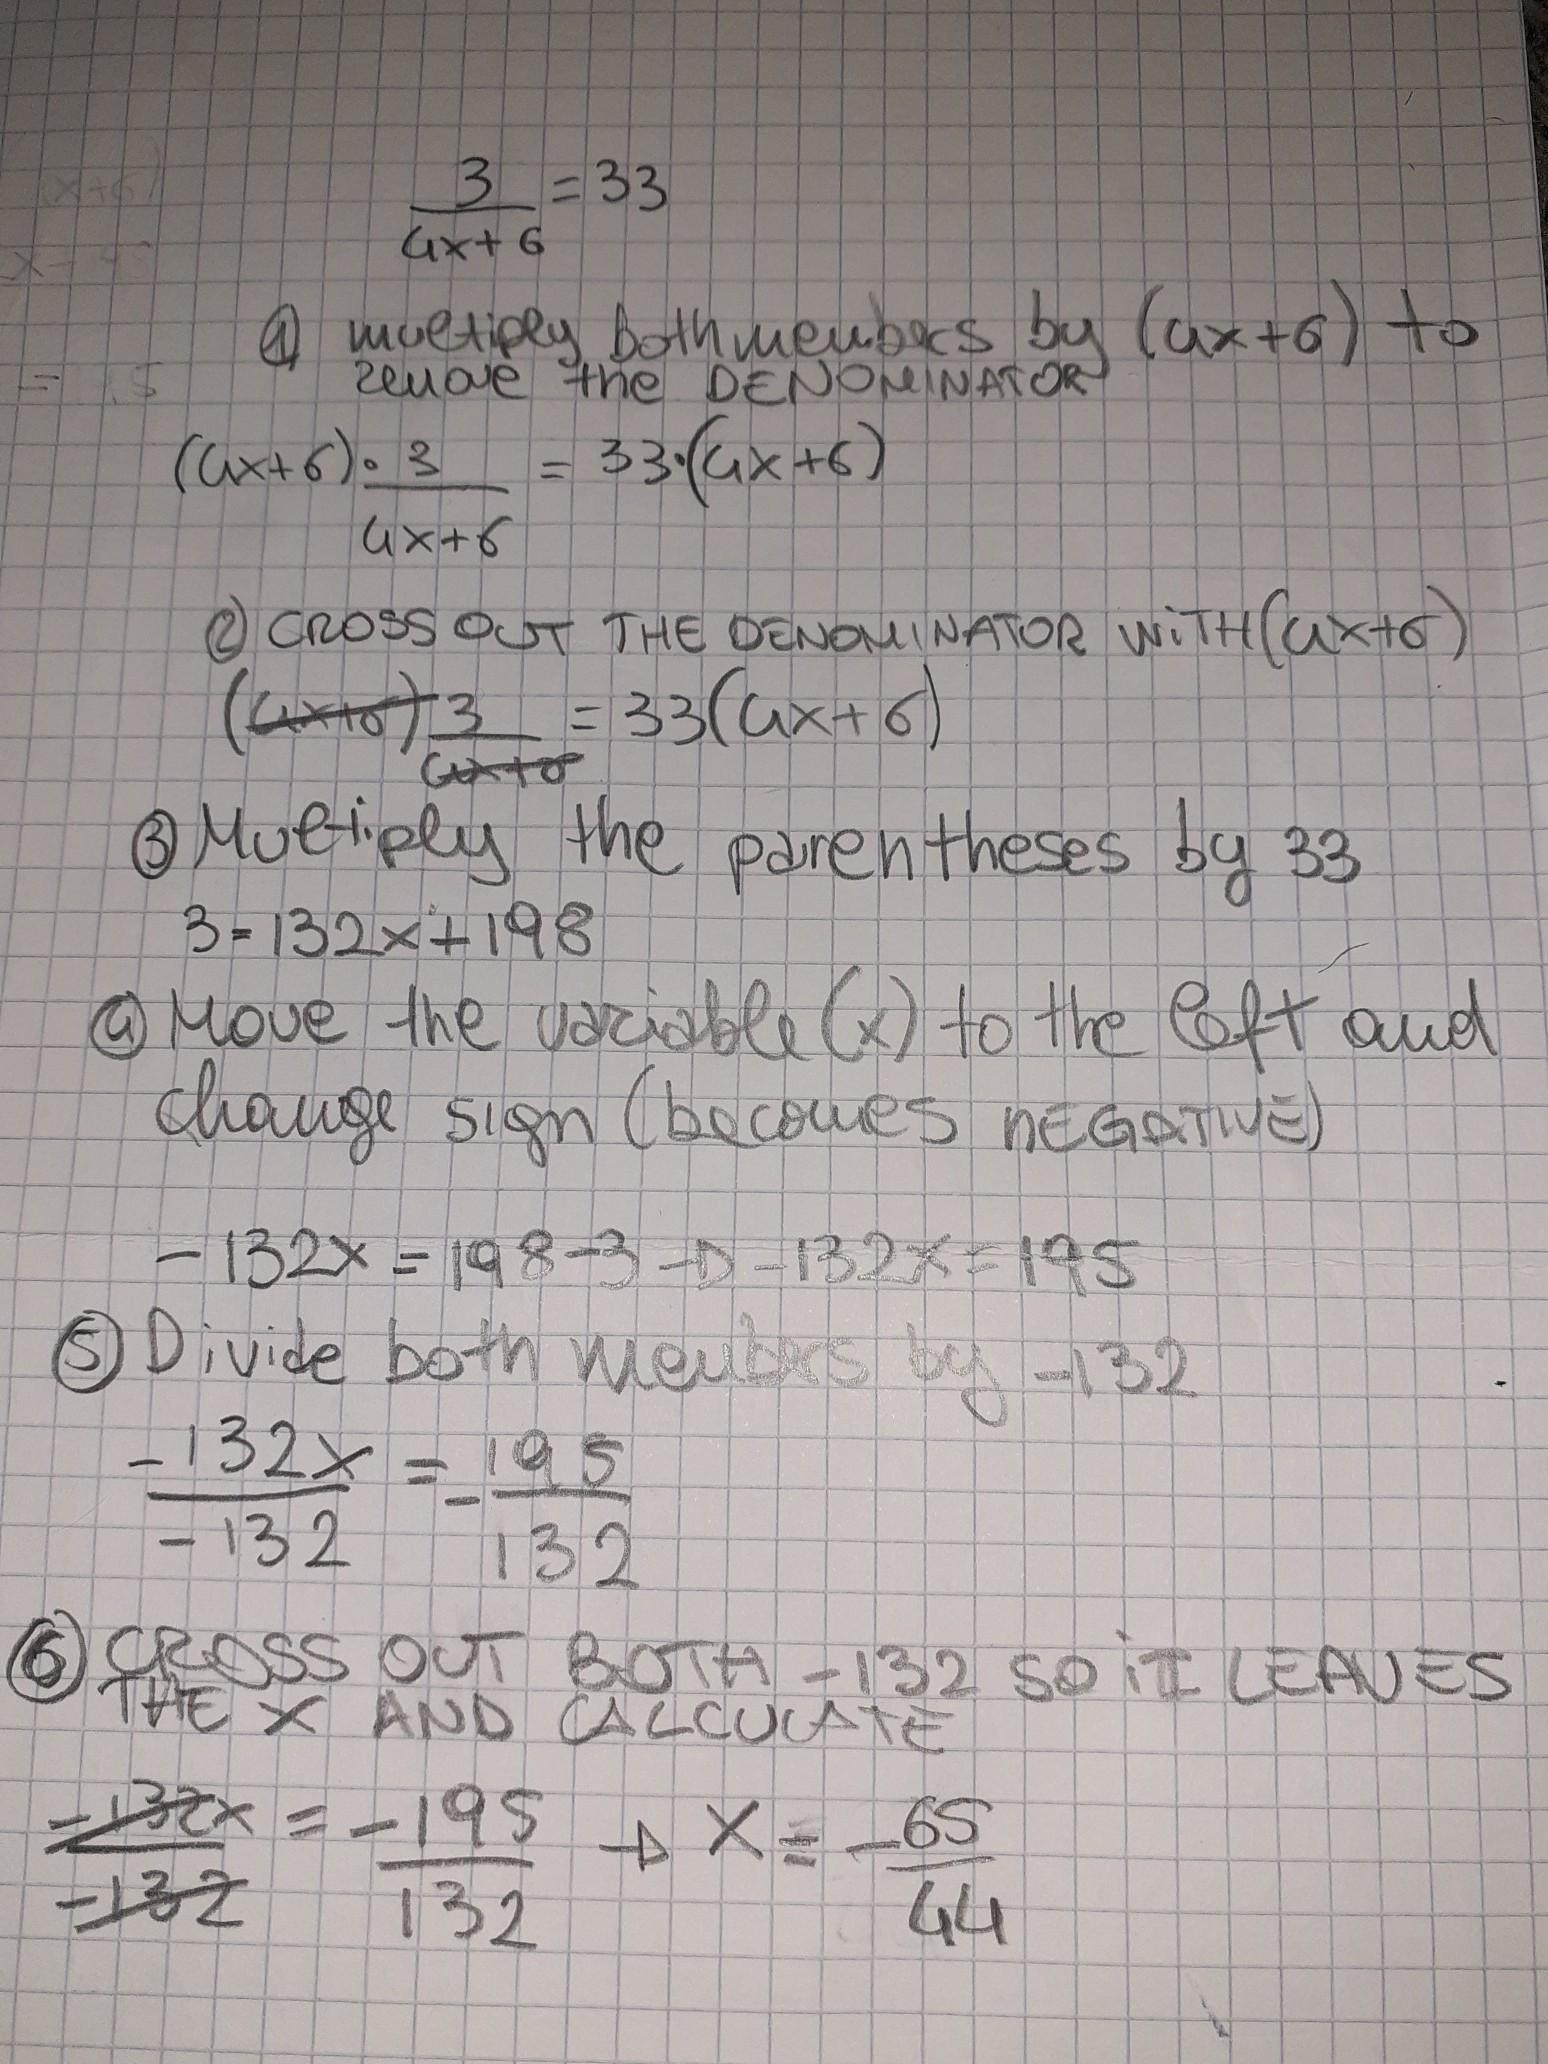 3/(4x+6) = 33
① multiply both members by (4x+6) to
remove the DENOMINATOR
(4x+6) · 3/(4x+6) = 33·(4x+6)
② CROSS OUT THE DENOMINATOR WITH (4x+6)
(4x+6) 3/(4x+6) = 33(4x+6)
③ Multiply the parentheses by 33
3 = 132x + 198
④ Move the variable (x) to the left and
change sign (becomes NEGATIVE)
-132x = 198-3 → -132x = 195
⑤ Divide both members by -132
-132x/-132 = -195/132
⑥ CROSS OUT BOTH -132 SO IT LEAVES
THE X AND CALCULATE
-132x/-132 = -195/132 → X = -65/44